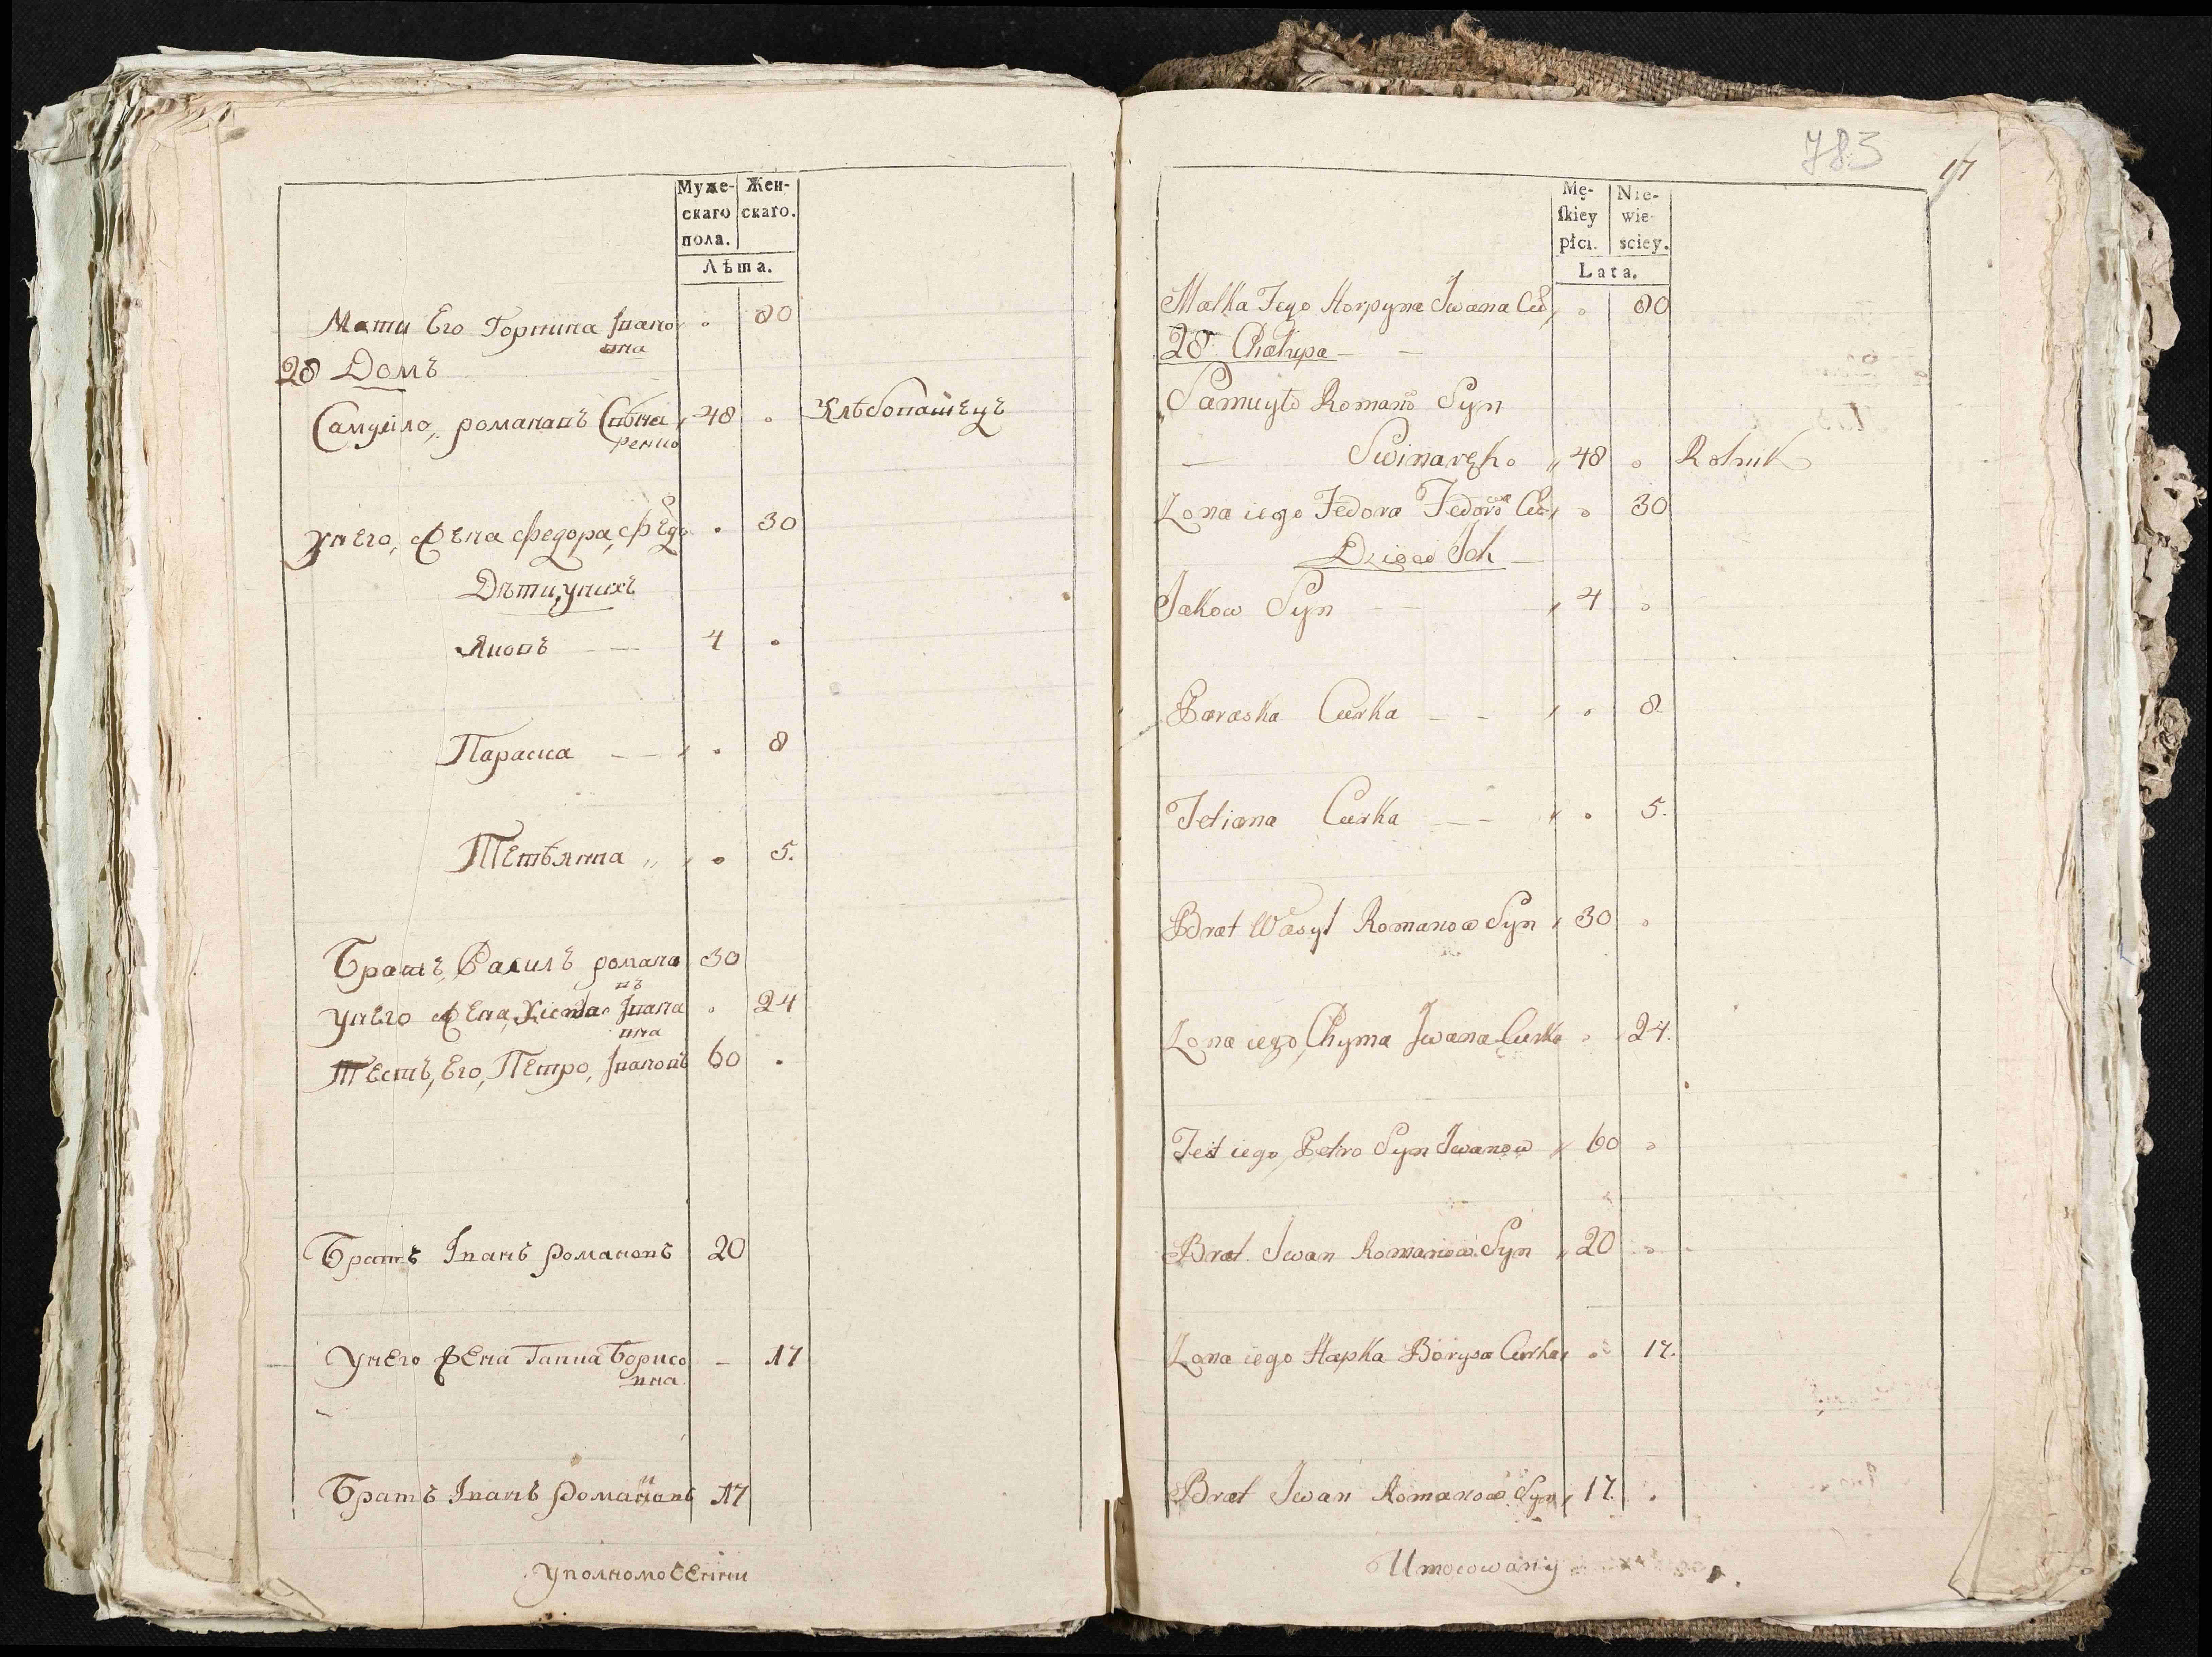 Муже- Жен-
скаго скаго.
пола.
Лѣта.
Мати Его Горпина Іvано 80
вна
28 Домъ
Самуйло, романовъ Свѣна 48 Хлѣбопашецъ
ренко
унего, жена федора, федо 30
Дѣти, унихъ
Яковъ 4
Параска 8
Тетѣяна 5.
Братъ, Василъ романо 30
въ
унего жена, Хима Івана 24
вна
Тесть, Его, Петро, Івановъ 60
Братъ Іванъ романовъ 20
унего жена Гапка Борисо 17
вна
Братъ Іванъ романовъ 17
уполномоченни
783
17
Mę- Nie-
ſkiey wie-
płci. sciey.
Lata.
Matka Jego Horpyna Iwana Có 80
28 Chałupa
Samuyło Romanó Syn
Swinarenko 48 Rolnik
Zona iego Fedora Fedoró Có 30
Dzieci Ich
Jakow Syn 4
Paraska Curka 8
Tetiana Curka 5.
Brat Wasyl Romanow Syn 30
Zona iego, Chyma Iwana Curka 24.
Test iego, Petro Syn Iwanow 60
Brat Iwan Romanow Syn 20
Zona iego Hapka Borysa Curka 17.
Brat Iwan Romanow Syn 17.
Umocowany